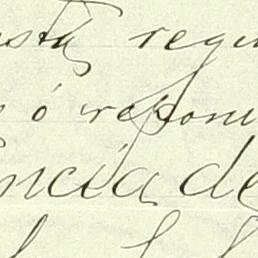 esta regu
ó repon
ncia de